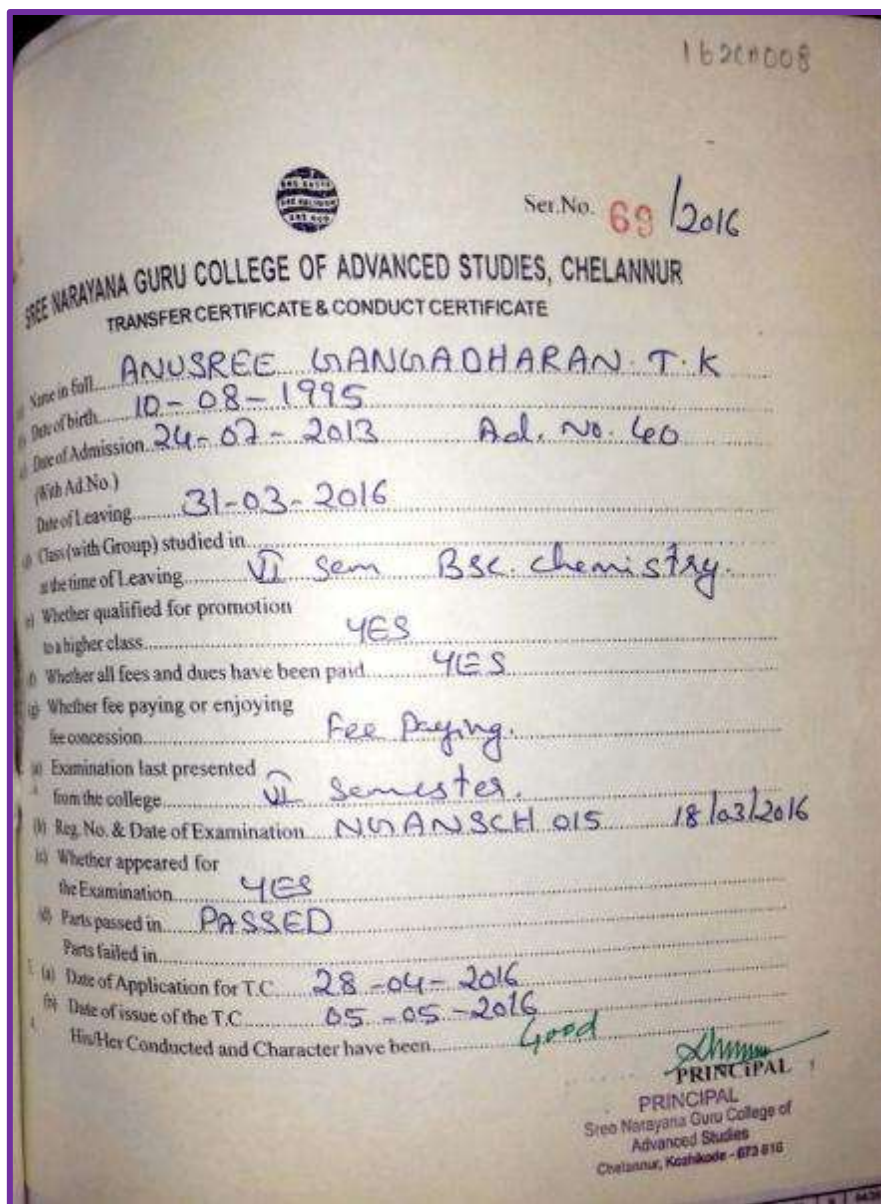 162CH008
ONE CASTE
ONE RELIGION
ONE GOD
Ser.No. 69 /2016
SREE NARAYANA GURU COLLEGE OF ADVANCED STUDIES, CHELANNUR
TRANSFER CERTIFICATE & CONDUCT CERTIFICATE
Name in full ANUSREE GANGADHARAN. T. K
Date of birth 10-08-1995
Date of Admission 24-07-2013 Ad. No. 40
(With Ad.No.)
Date of Leaving 31-03-2016
Class (with Group) studied in
at the time of Leaving VI Sem BSc. chemistry.
e) Whether qualified for promotion
to a higher class YES
f) Whether all fees and dues have been paid YES
(g) Whether fee paying or enjoying
fee concession Fee Paying.
(a) Examination last presented
from the college VI Semester.
(b) Reg. No. & Date of Examination NGANSCH 015 18/03/2016
(c) Whether appeared for
the Examination YES
(d) Parts passed in PASSED
Parts failed in
(a) Date of Application for T.C 28-04-2016
(b) Date of issue of the T.C 05-05-2016
His/Her Conducted and Character have been Good
PRINCIPAL
PRINCIPAL
Sree Narayana Guru College of
Advanced Studies
Chelannur, Kozhikode - 673 616